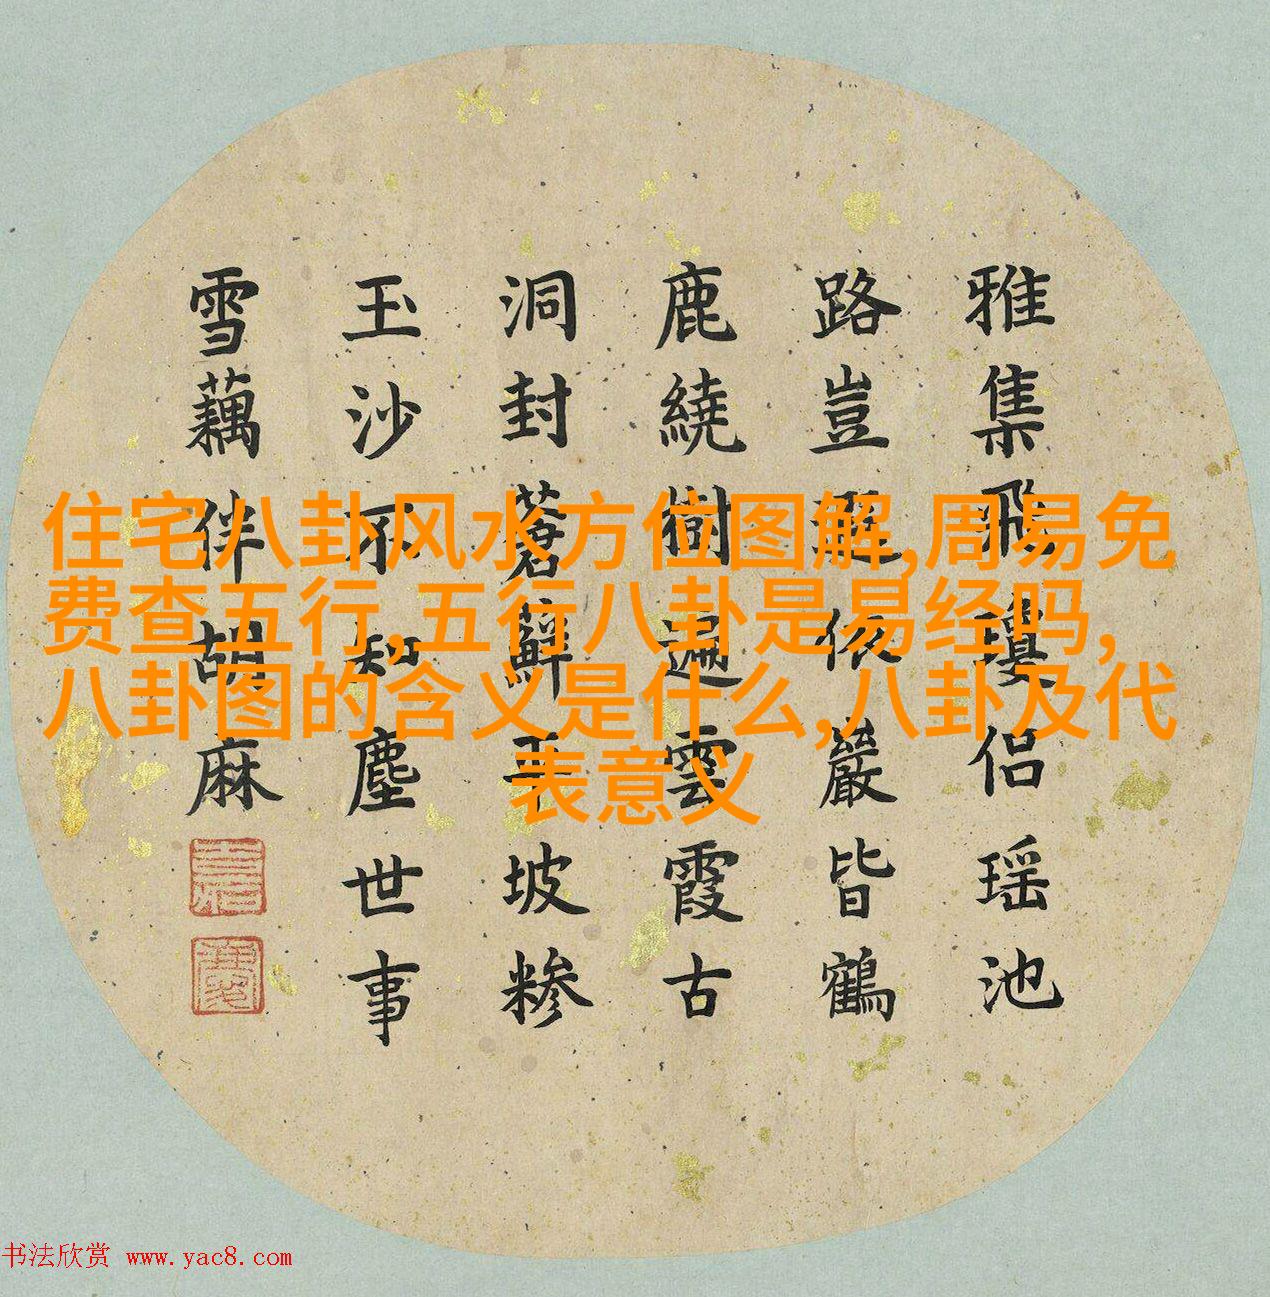 雅集飛瓊侶瑶池
路豈遥依巖皆鶴
鹿繞樹遍雲霞古
洞封蒼蘚平坡糝
玉沙不知塵世事
雪藕伴胡麻
住宅八卦风水方位图解,周易免
费查五行,五行八卦是易经吗,
八卦图的含义是什么,八卦及代
表意义
书法欣赏 www.yac8.com